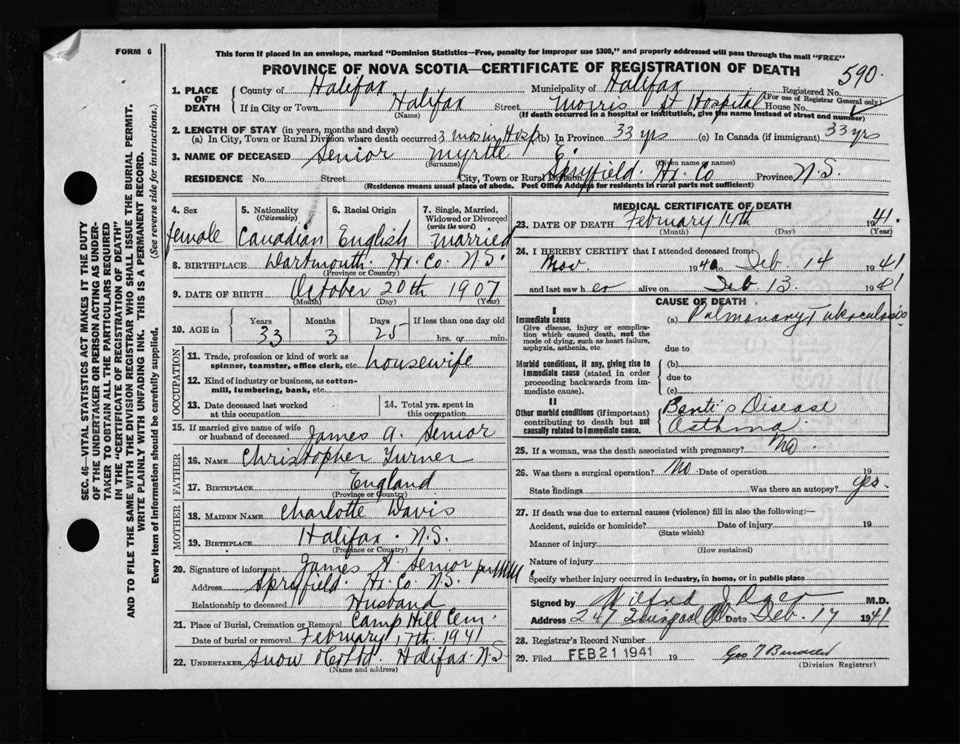 FORM 6
This form if placed in an envelope, marked "Dominion Statistics—Free, penalty for improper use $300," and properly addressed will pass through the mail "FREE"
PROVINCE OF NOVA SCOTIA—CERTIFICATE OF REGISTRATION OF DEATH
590.
1. PLACE OF DEATH
County of Halifax Municipality of Halifax Registered No.
(For use of Registrar General only)
If in City or Town Halifax Street Morris St Hospital House No.
(Name) (If death occurred in a hospital or institution, give the name instead of street and number)
2. LENGTH OF STAY (in years, months and days)
(a) In City, Town or Rural Division where death occurred 3 mos in Hosp (b) In Province 33 yrs (c) In Canada (if immigrant) 33 yrs
3. NAME OF DECEASED Senior Myrtle E.
(Surname) (Given name or names)
RESIDENCE No. Street City, Town or Rural Division Spryfield. Hx. Co Province N.S.
(Residence means usual place of abode. Post Office Address for residents in rural parts not sufficient)
4. Sex
female
5. Nationality
(Citizenship)
Canadian
6. Racial Origin
English
7. Single, Married, Widowed or Divorced
(write the word)
married
8. BIRTHPLACE Dartmouth. Hx. Co. N.S.
(Province or Country)
9. DATE OF BIRTH October 20th 1907
(Month) (Day) (Year)
10. AGE in
Years Months Days If less than one day old
33 3 25 hrs. or min.
OCCUPATION
11. Trade, profession or kind of work as spinner, teamster, office clerk, etc. housewife
12. Kind of industry or business, as cotton-mill, lumbering, bank, etc.
13. Date deceased last worked at this occupation
14. Total yrs. spent in this occupation
15. If married give name of wife or husband of deceased James A. Senior
FATHER
16. Name Christopher Turner
17. Birthplace England
(Province or Country)
MOTHER
18. Maiden Name Charlotte Davis
19. Birthplace Halifax. N.S.
(Province or Country)
20. Signature of informant James A. Senior
Address Spryfield. Hx. Co N.S.
Relationship to deceased Husband
21. Place of Burial, Cremation or Removal Camp Hill Cem.
Date of burial or removal February 17th. 1941
22. UNDERTAKER Snow & Co Ltd. Halifax. N.S.
(Name and address)
MEDICAL CERTIFICATE OF DEATH
23. DATE OF DEATH February 14th 1941.
(Month) (Day) (Year)
24. I HEREBY CERTIFY that I attended deceased from:
Nov. 1940 to Feb. 14 1941
and last saw her alive on Feb 13 1941
CAUSE OF DEATH
I
Immediate cause
Give disease, injury or complication which caused death, not the mode of dying, such as heart failure, asphyxia, asthenia, etc.
(a) Pulmonary Tuberculosis
due to
Morbid conditions, if any, giving rise to immediate cause (stated in order proceeding backwards from immediate cause).
(b)
due to
(c)
II
Other morbid conditions (if important) contributing to death but not causally related to immediate cause.
Banti's Disease
Asthma
25. If a woman, was the death associated with pregnancy? No
26. Was there a surgical operation? No Date of operation 19
State findings Was there an autopsy? yes.
27. If death was due to external causes (violence) fill in also the following:—
Accident, suicide or homicide? Date of injury 19
(State which)
Manner of injury
(How sustained)
Nature of injury
Specify whether injury occurred in industry, in home, or in public place
Signed by Wilfred M.D.
Address 247 Date Feb. 17 1941
28. Registrar's Record Number
29. Filed FEB 21 1941 19
(Division Registrar)
SEC. 46—VITAL STATISTICS ACT MAKES IT THE DUTY
OF THE UNDERTAKER OR PERSON ACTING AS UNDERTAKER TO OBTAIN ALL THE PARTICULARS REQUIRED
IN THE "CERTIFICATE OF REGISTRATION OF DEATH"
AND TO FILE THE SAME WITH THE DIVISION REGISTRAR WHO SHALL ISSUE THE BURIAL PERMIT.
WRITE PLAINLY WITH UNFADING INK. THIS IS A PERMANENT RECORD.
Every item of information should be carefully supplied. (See reverse side for instructions.)